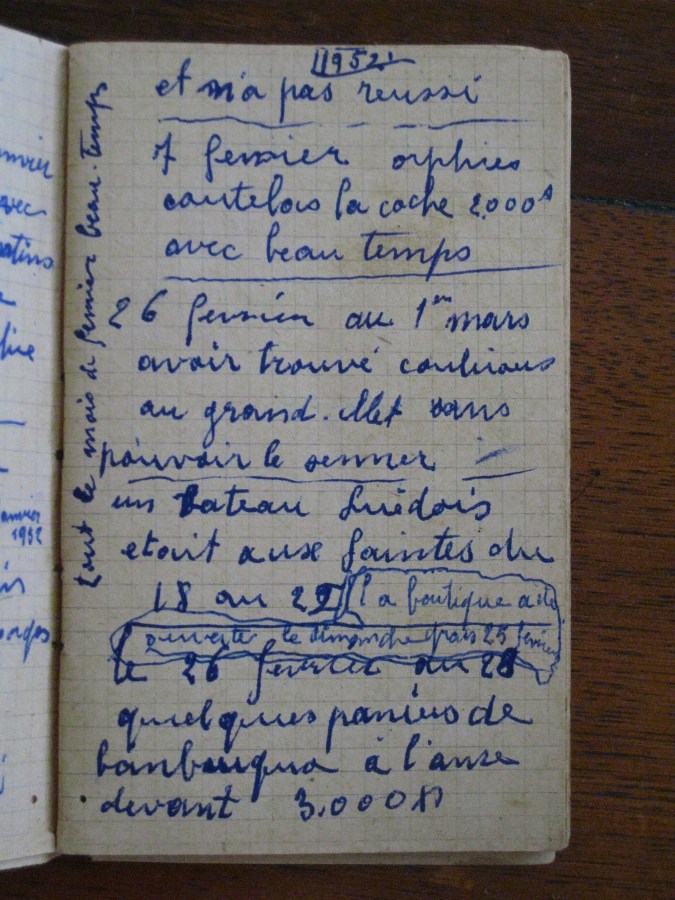 1952
et n'a pas reussi
7 fevrier orphies
coutelas la coche 2.000
avec beau temps
26 fevrier au 1er mars
avoir trouvé coulirous
au grand. Ilet sans
pouvoir le senner
un bateau Suédois
etait aux Saintes du
18 au 22
la boutique a été
ouverte le dimanche gras 25 fevrier
le 26 fevrier au 28
quelques paniers de
banbouqua à l'anse
devant 3.000
tout le mois de fevrier beau-temps
nvier
avec
anvier
1952